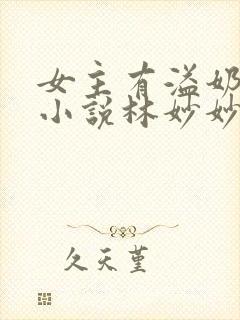 女主有溢奶
小說林妙妙
久天堇